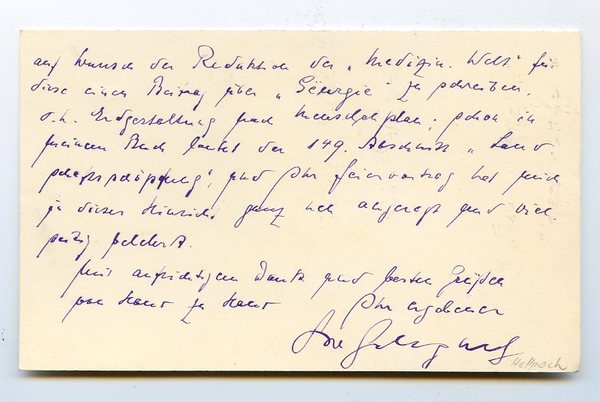 auf Wunsch der Redaktion der „Medizin. Welt" für
diese einen Beitrag über „Geurgie" zu schreiben,
d.h. Erdgestaltung nach Menschenplan; schon in
meinem Buch lautet der 149. Abschnitt „Land-
schaftsschöpfung", und Ihr Feiervortrag hat mich
in dieser Hinsicht ganz neu angeregt und viel-
seitig belehrt.
Mit aufrichtigem Dank und besten Grüßen
von Haus zu Haus Ihr ergebener
Hellpach